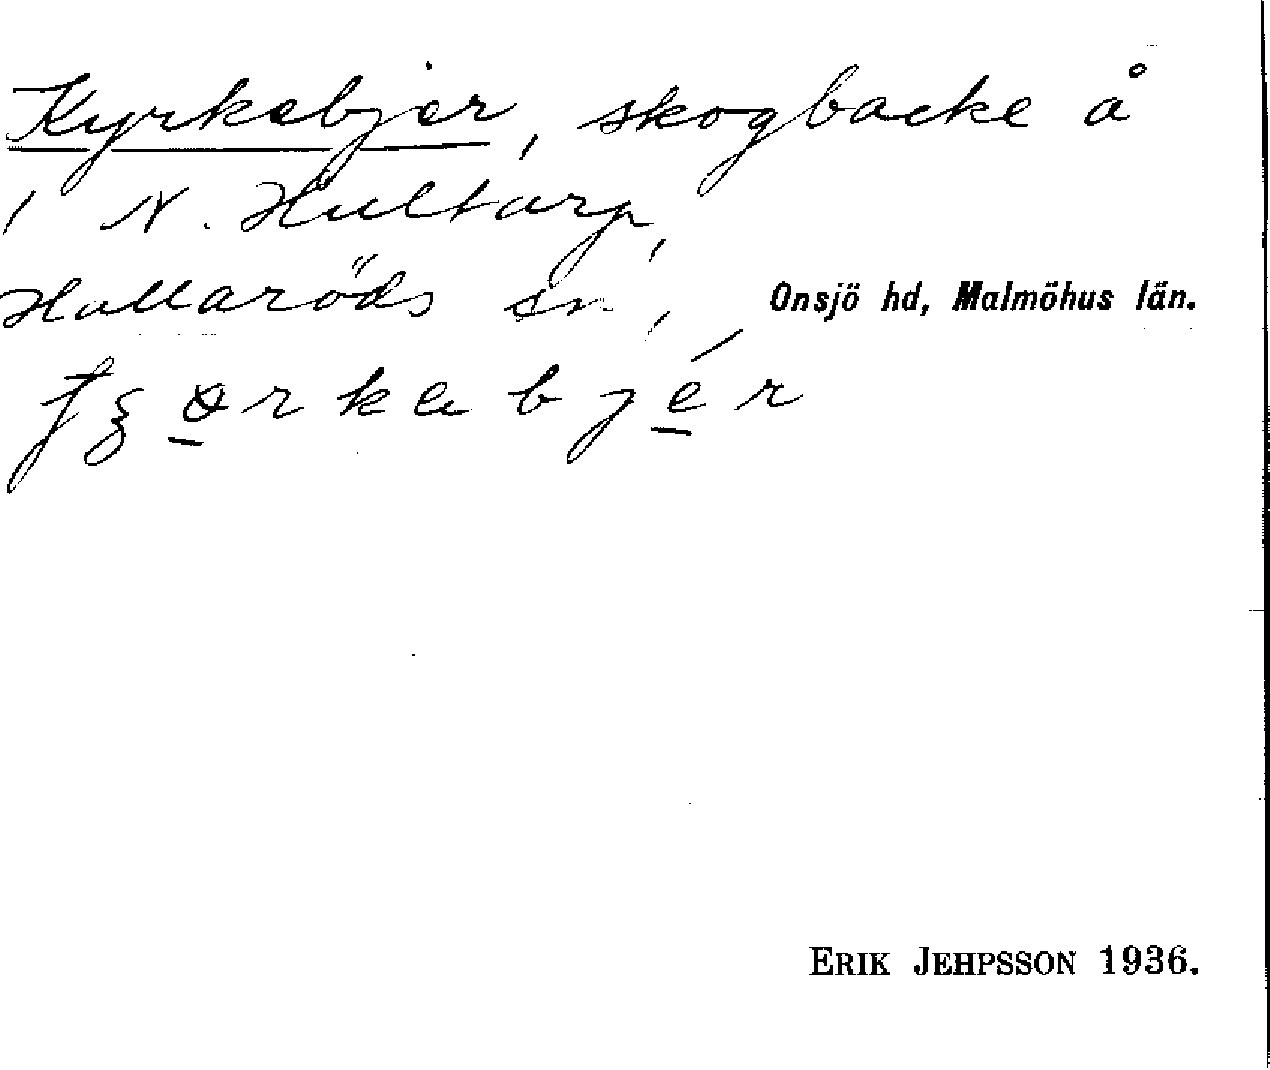 Kyrkebjer, skogbacke å
1 N. Hultarp,
Hallaröds sn, Onsjö hd, Malmöhus län.
ERIK JEHPSSON 1936.